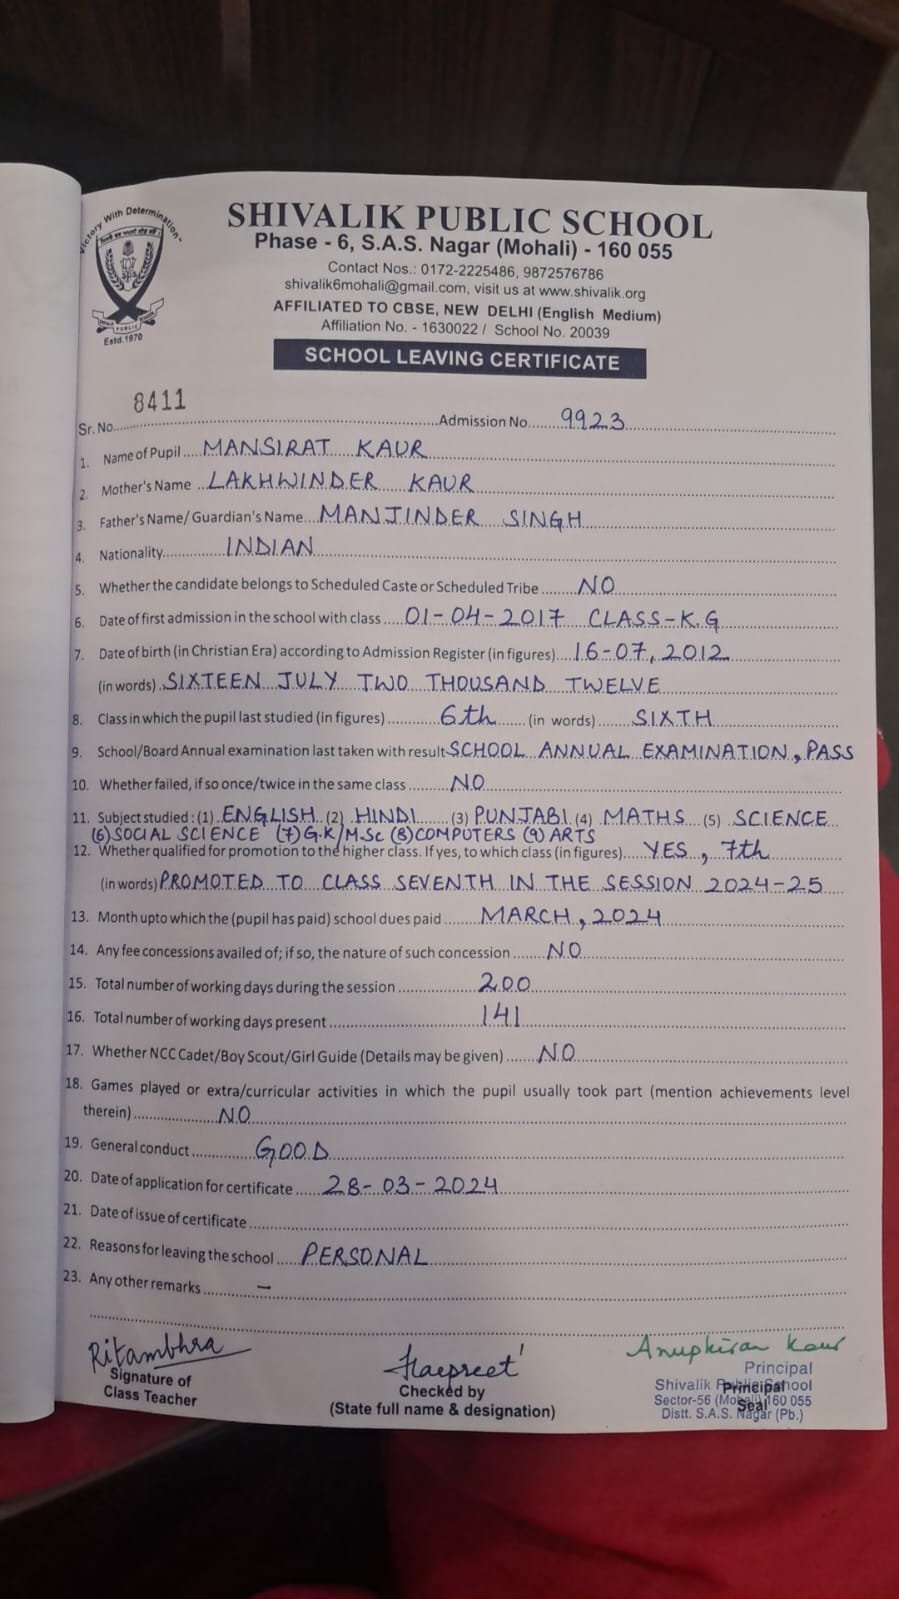 Victory With Determination
SHIVALIK PUBLIC SCHOOL
Phase - 6, S.A.S. Nagar (Mohali) - 160 055
Contact Nos.: 0172-2225486, 9872576786
shivalik6mohali@gmail.com, visit us at www.shivalik.org
AFFILIATED TO CBSE, NEW DELHI (English Medium)
Affiliation No. - 1630022 / School No. 20039
PUBLIC
Estd. 1970
SCHOOL LEAVING CERTIFICATE
Sr. No. 8411 Admission No. 9923
1. Name of Pupil MANSIRAT KAUR
2. Mother's Name LAKHWINDER KAUR
3. Father's Name/ Guardian's Name MANJINDER SINGH
4. Nationality INDIAN
5. Whether the candidate belongs to Scheduled Caste or Scheduled Tribe NO
6. Date of first admission in the school with class 01-04-2017 CLASS-K.G
7. Date of birth (in Christian Era) according to Admission Register (in figures) 16-07, 2012
(in words) SIXTEEN JULY TWO THOUSAND TWELVE
8. Class in which the pupil last studied (in figures) 6th (in words) SIXTH
9. School/Board Annual examination last taken with result SCHOOL ANNUAL EXAMINATION, PASS
10. Whether failed, if so once/twice in the same class NO
11. Subject studied : (1) ENGLISH (2) HINDI (3) PUNJABI (4) MATHS (5) SCIENCE
(6) SOCIAL SCIENCE (7) G.K/M.Sc (8) COMPUTERS (9) ARTS
12. Whether qualified for promotion to the higher class. If yes, to which class (in figures) YES, 7th
(in words) PROMOTED TO CLASS SEVENTH IN THE SESSION 2024-25
13. Month upto which the (pupil has paid) school dues paid MARCH, 2024
14. Any fee concessions availed of; if so, the nature of such concession NO
15. Total number of working days during the session 200
16. Total number of working days present 141
17. Whether NCC Cadet/Boy Scout/Girl Guide (Details may be given) NO
18. Games played or extra/curricular activities in which the pupil usually took part (mention achievements level
therein) NO
19. General conduct GOOD
20. Date of application for certificate 28-03-2024
21. Date of issue of certificate
22. Reasons for leaving the school PERSONAL
23. Any other remarks –
Ritambhra Harpreet Anupkiran Kaur
Signature of
Class Teacher
Checked by
(State full name & designation)
Principal
Shivalik Public School
Sector-56 (Mohali) 160 055
Distt. S.A.S. Nagar (Pb.)
Principal
Seal